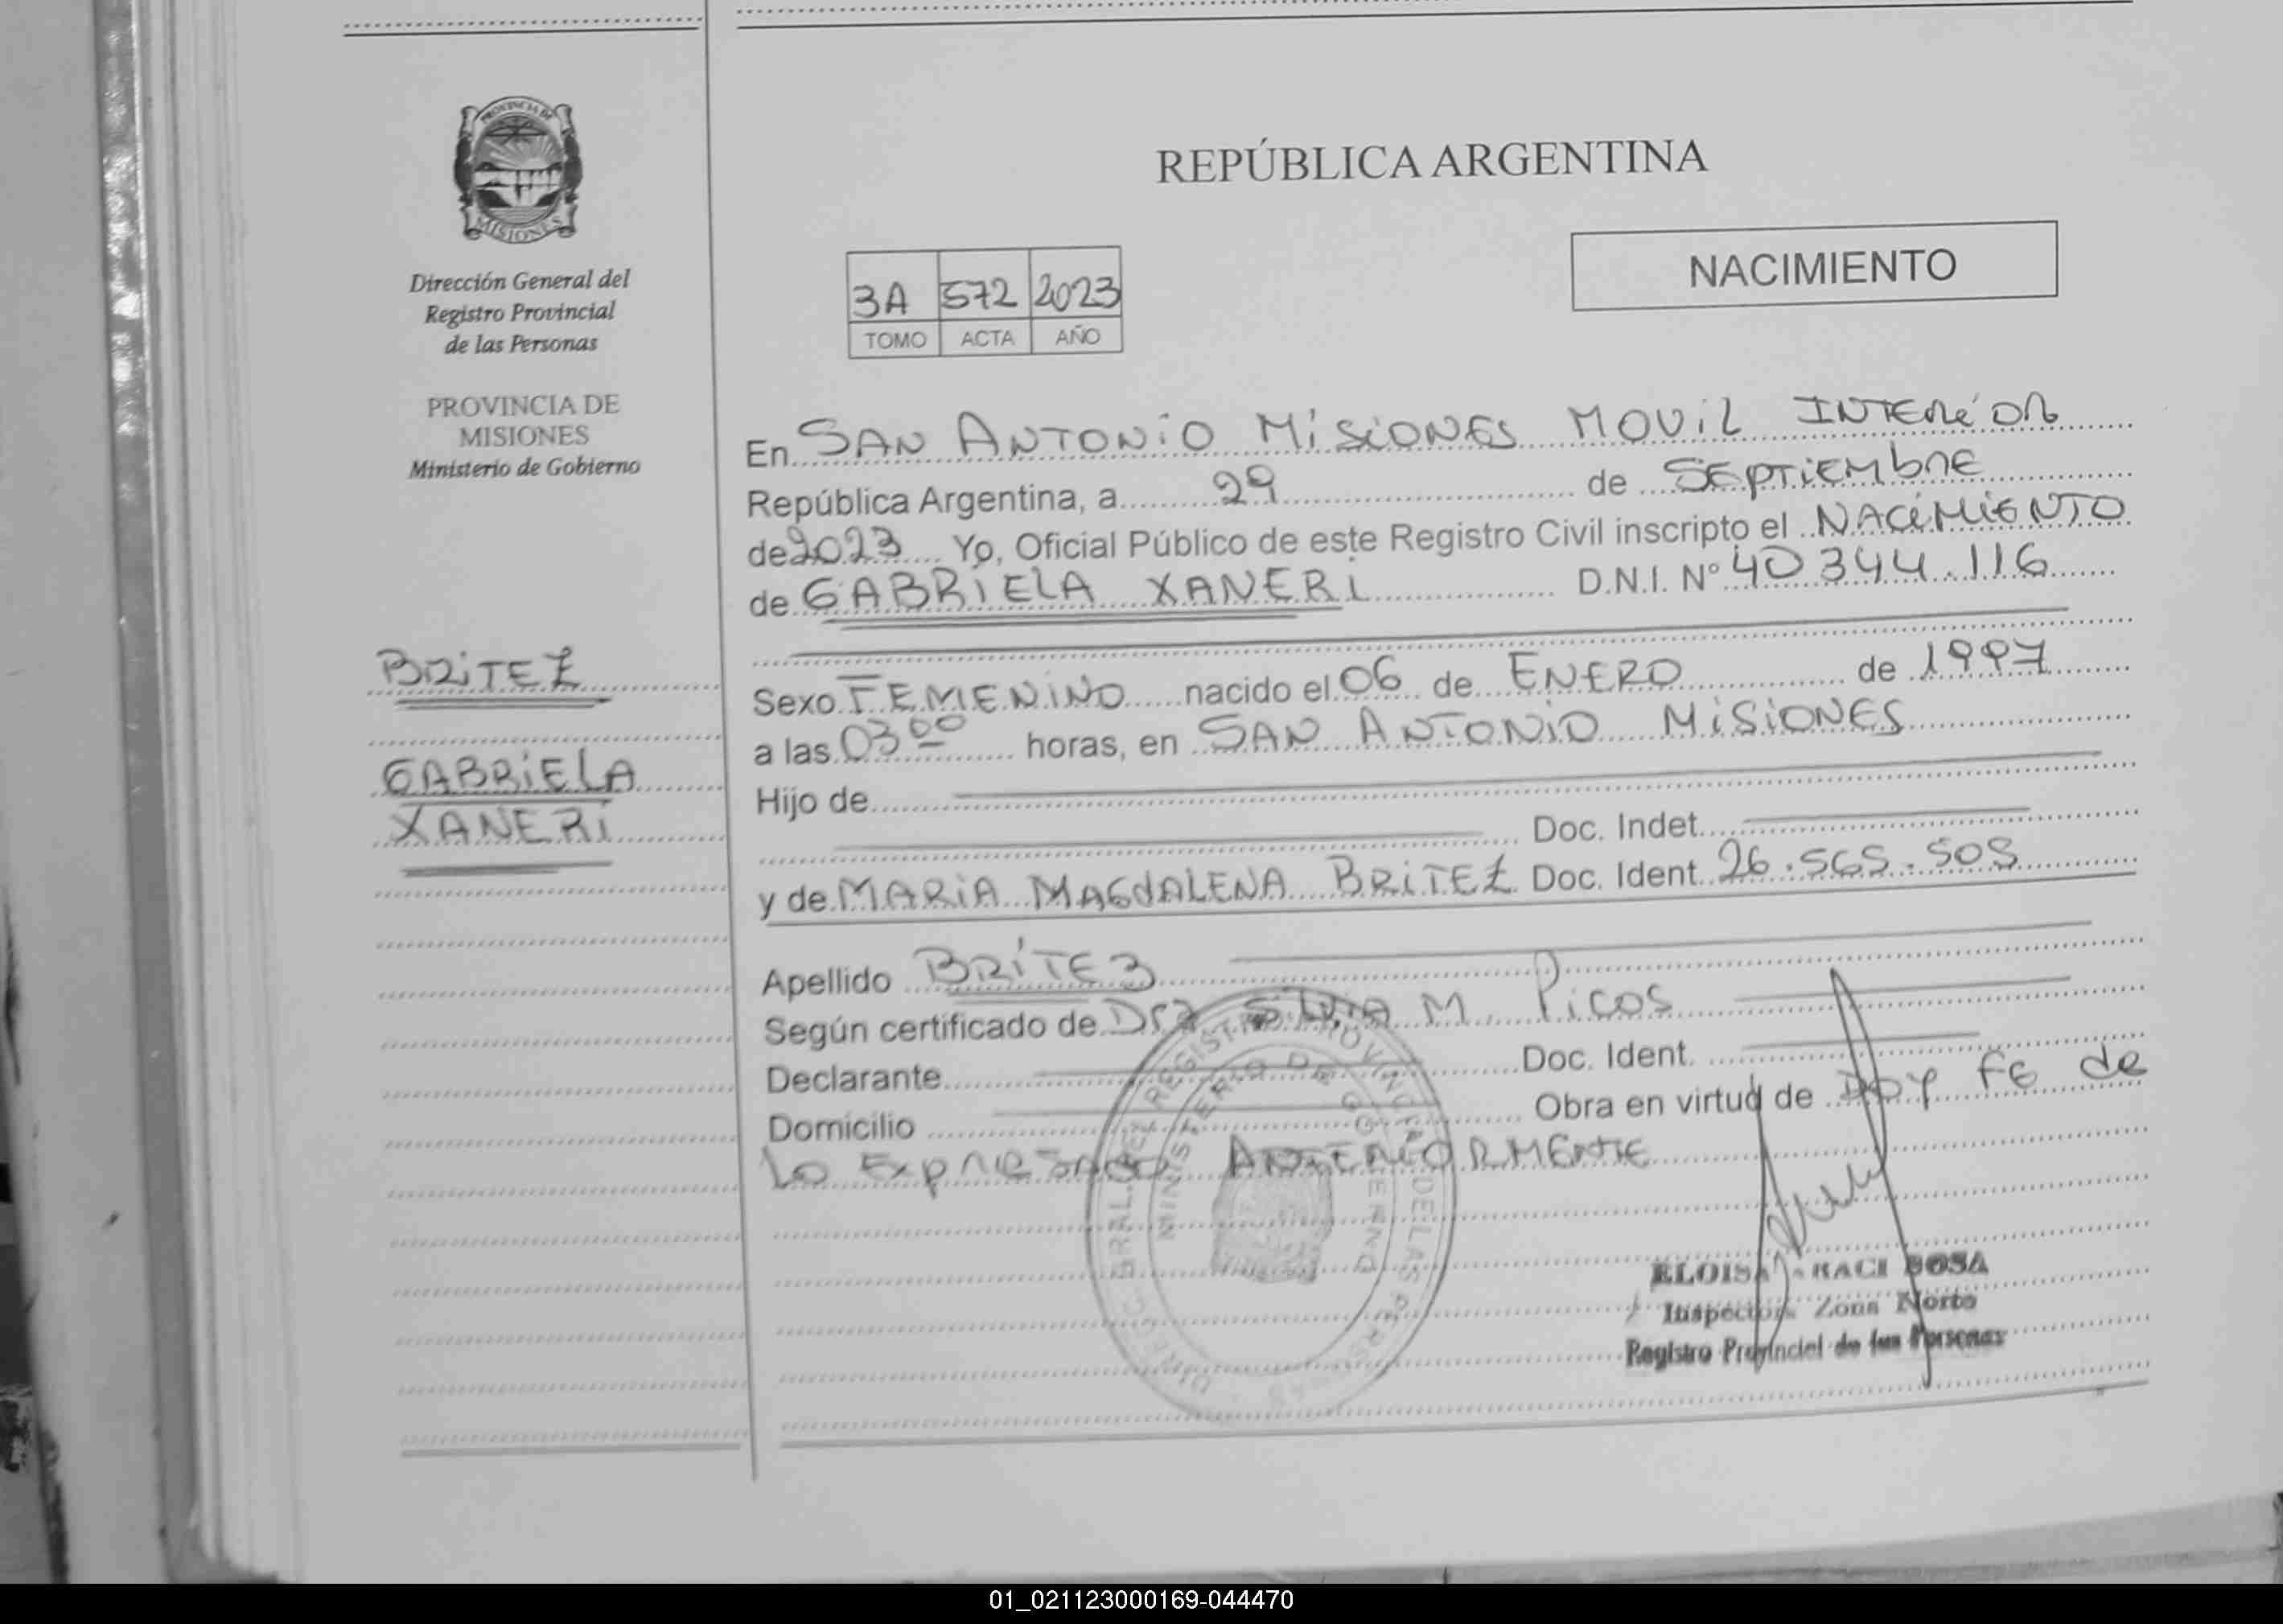 PROVINCIA DE
MISIONES
Dirección General del
Registro Provincial
de las Personas
PROVINCIA DE
MISIONES
Ministerio de Gobierno
BRITEZ
GABRIELA
XANERI
REPÚBLICA ARGENTINA
NACIMIENTO
3A 572 2023
TOMO ACTA AÑO
En SAN ANTONIO MISIONES MOVIL INTERIOR
República Argentina, a 29 de SEPTIEMBRE
de 2023 Yo, Oficial Público de este Registro Civil inscripto el NACIMIENTO
de GABRIELA XANERI D.N.I. Nº 40344.116
Sexo FEMENINO nacido el 06 de ENERO de 1997
a las 03 00 horas, en SAN ANTONIO MISIONES
Hijo de
Doc. Indet.
y de MARIA MAGDALENA BRITEZ Doc. Ident. 26.565.505
Apellido BRITEZ
Según certificado de Dra SILVIA M. Picos
Declarante Doc. Ident.
Domicilio Obra en virtud de DOY FE de
Lo EXPRESADO ANTERIORMENTE
MINISTERIO DE GOBIERNO
ELOISA BOSA
Inspectora Zona Norte
Registro Provincial de las Personas
01_021123000169-044470